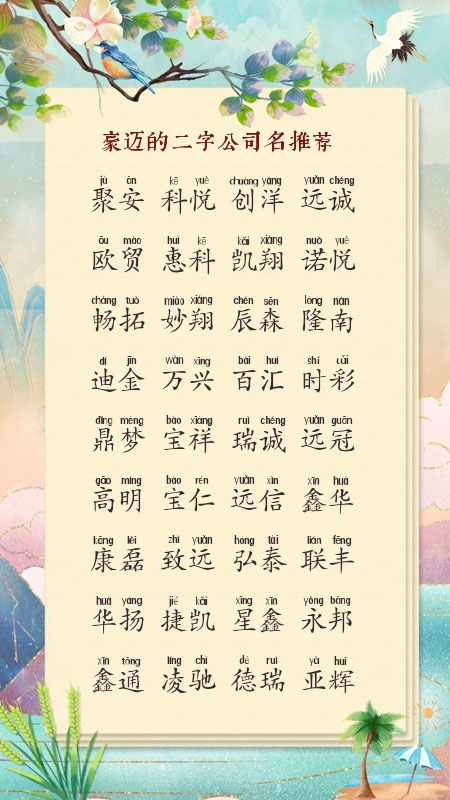 豪迈的二字公司名推荐
jù ān kē yuè chuàng yáng yuǎn chéng
聚安 科悦 创洋 远诚
ōu mào huì kē kǎi xiáng nuò yuè
欧贸 惠科 凯翔 诺悦
chàng tuò miào xiáng chén sēn lóng nán
畅拓 妙翔 辰森 隆南
dí jīn wàn xīng bǎi huì shí cǎi
迪金 万兴 百汇 时彩
dǐng mèng bǎo xiáng ruì chéng yuǎn guān
鼎梦 宝祥 瑞诚 远冠
gāo míng bǎo rén yuǎn xìn xīn huá
高明 宝仁 远信 鑫华
kāng lěi zhì yuǎn hóng tài lián fēng
康磊 致远 弘泰 联丰
huá yáng jié kǎi xīng xīn yǒng bāng
华扬 捷凯 星鑫 永邦
xīn tōng líng chí dé ruì yà huī
鑫通 凌驰 德瑞 亚辉